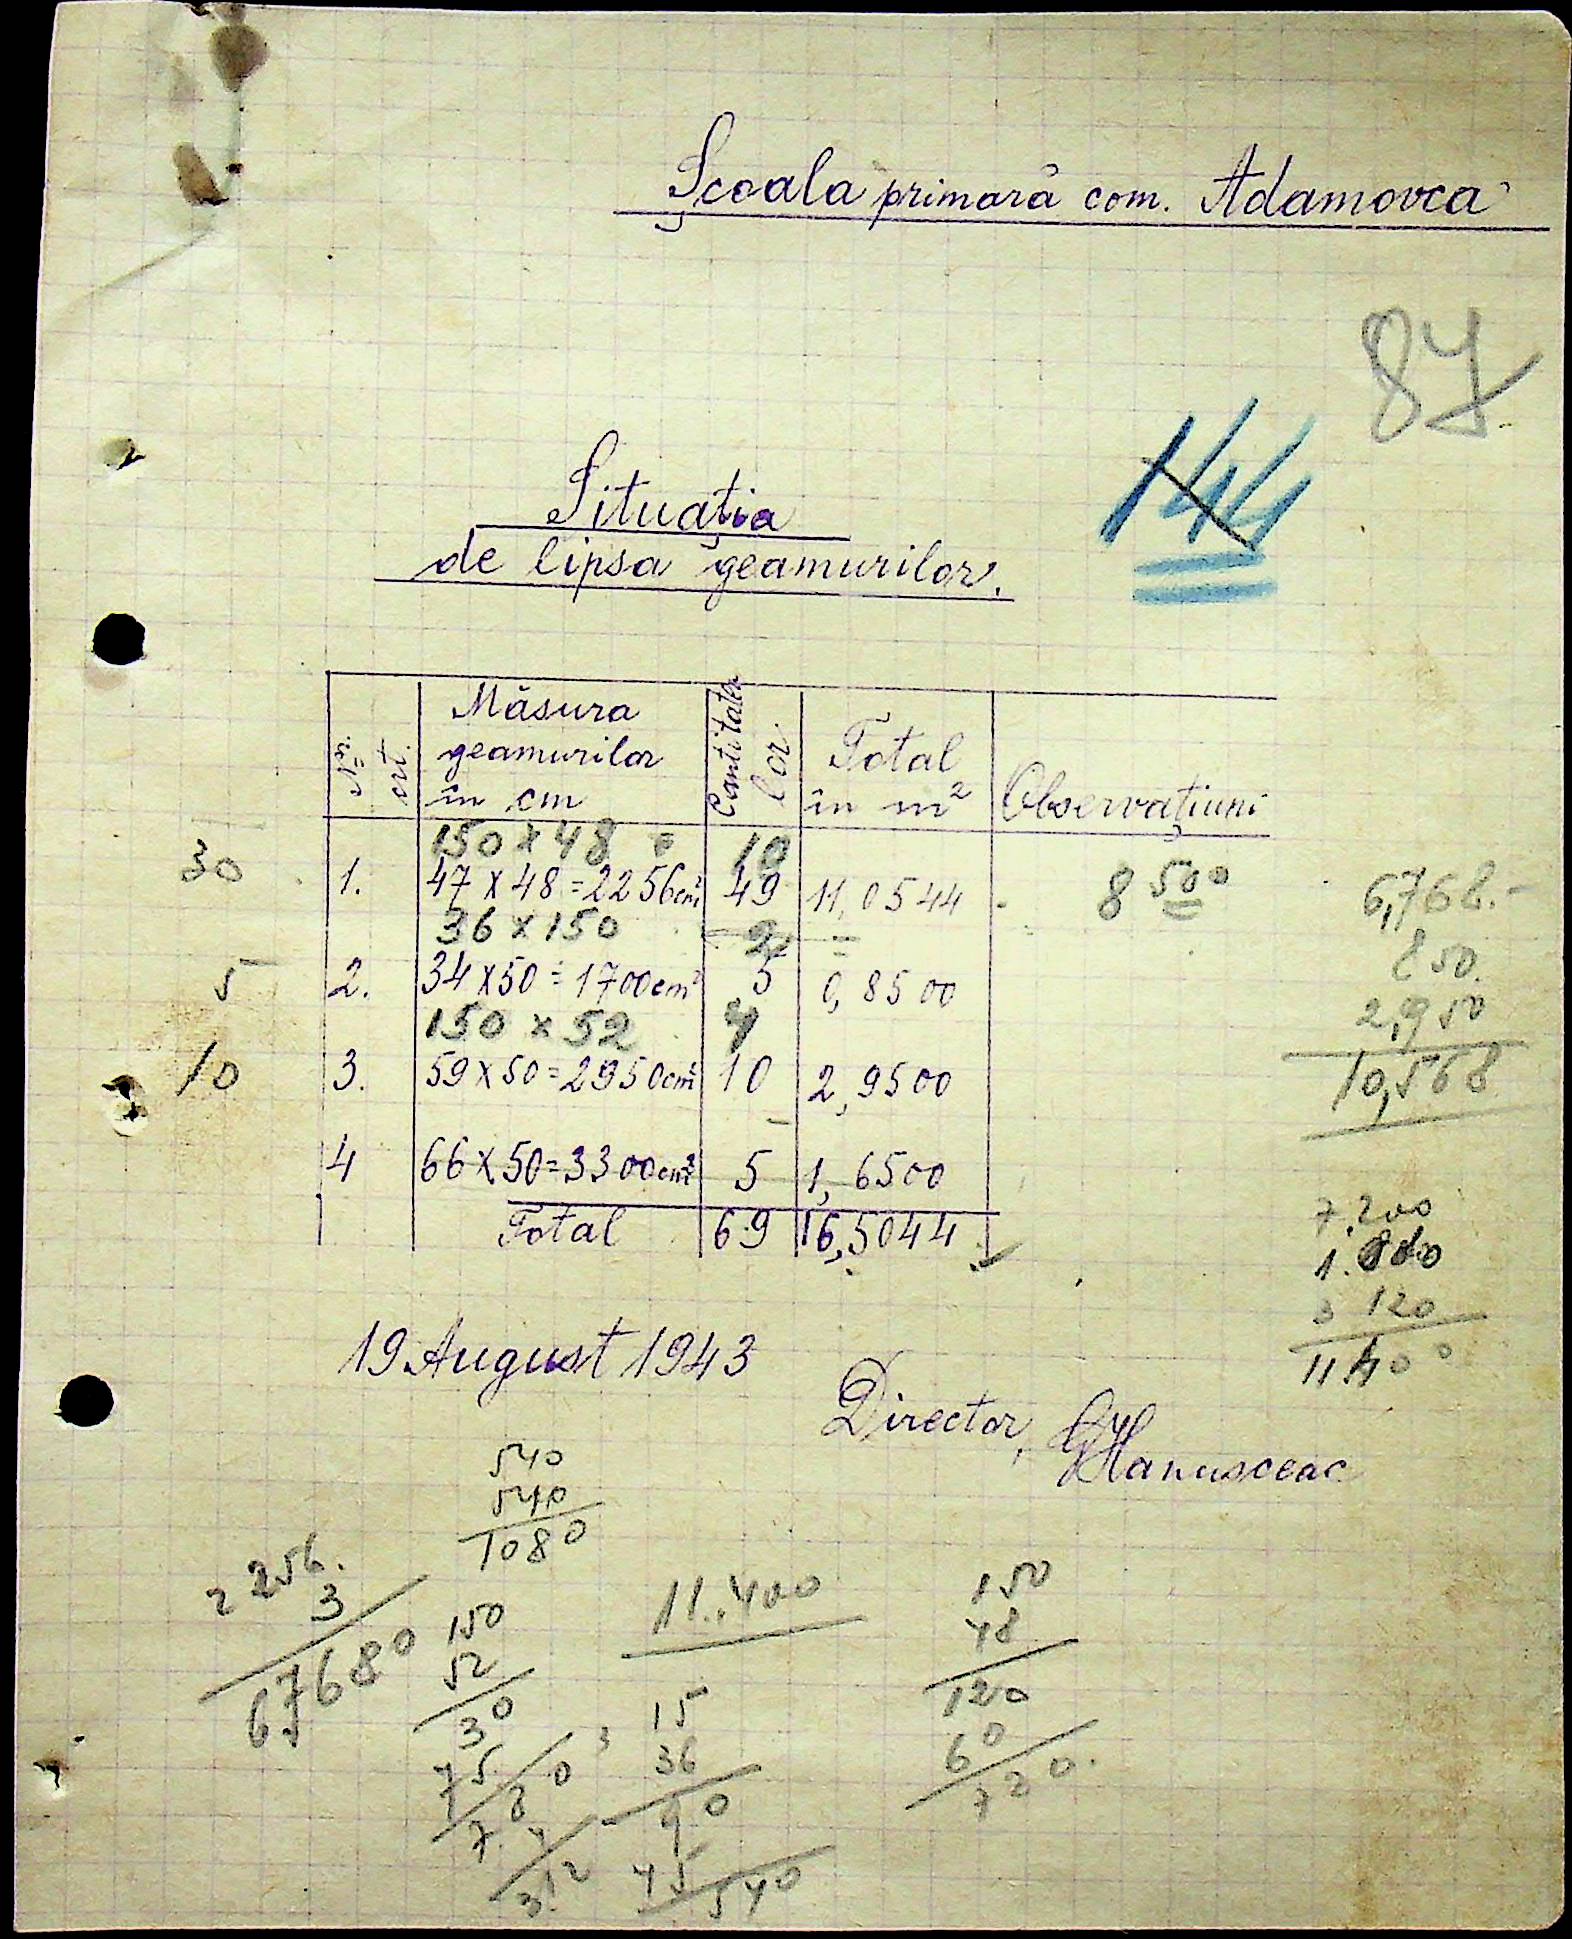 Școala primară com. Adamovca
87
144
Situația
de lipsa geamurilor.
Nr. crt.
Măsura geamurilor în cm
Cantitatea lor
Total în m²
Observațiuni
150 x 48 10
30 1. 47 x 48 = 2256 cm² 49 11,0544 8 500 6,768.-
36 x 150 2
850.
5 2. 34 x 50 = 1700 cm² 5 0,8500
150 x 52 4 2,950
10 3. 59 x 50 = 2950 cm² 10 2,9500 10,568
4 66 x 50 = 3300 cm² 5 1,6500
Total 69 16,5044
7.200
1.
3 120
11400
19 August 1943
Director, Hanusceac
540
540
1080
2256.
3
67680
150
52
30
75
780
4
3.12
11.400
15
36
90
45
540
150
48
120
60
720.